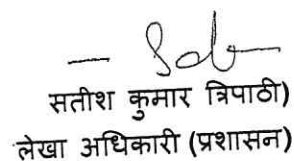 सतीश कुमार त्रिपाठी)
लेखा अधिकारी (प्रशासन)